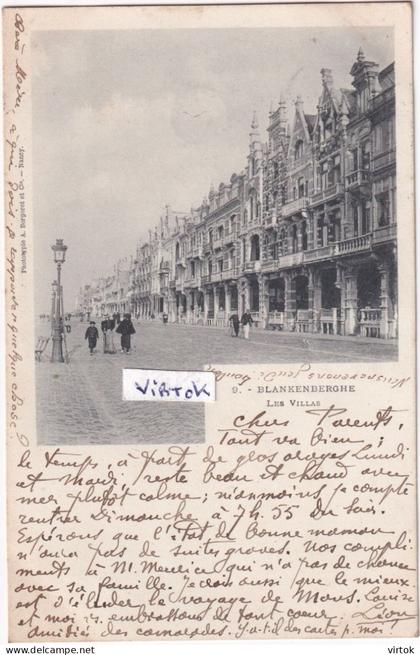 9. - BLANKENBERGHE
LES VILLAS
Phototypie A. Bergeret et Cie. - Nancy.
VIRTOK
Chers Parents,
Tout va bien ;
le temps, à part de gros orages Lundi
et Mardi, reste beau et chaud avec
mer plutôt calme ; n'anmoins je compte
rentrer Dimanche à 7h.55 du soir.
Espérons que l'état de bonne maman
n'aura pas de suites graves. Nos compli-
ments à M. qui n'a pas de chance
avec sa famille. Je crois aussi que le mieux
est d'éluder le voyage de Mons. Louise
et moi vs embrassons de tout coeur. Léon
Amitiés des camarades. Y-a-t-il des cartes p. moi ?
virtok